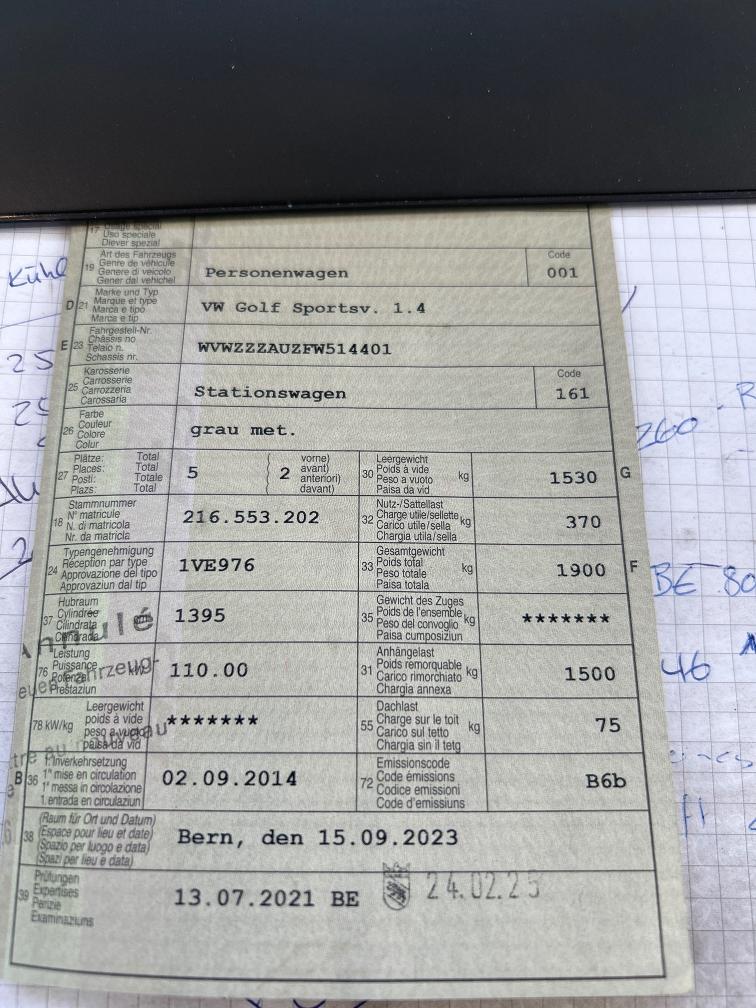 17 Usage spécial
Uso speciale
Diever spezial
19 Art des Fahrzeugs
Genre de véhicule
Genere di veicolo
Gener dal vehichel
Personenwagen
Code
001
D 21 Marke und Typ
Marque et type
Marca e tipo
Marca e tip
VW Golf Sportsv. 1.4
E 23 Fahrgestell-Nr.
Châssis no
Telaio n.
Schassis nr.
WVWZZZAUZFW514401
25 Karosserie
Carrosserie
Carrozzeria
Carossaria
Stationswagen
Code
161
26 Farbe
Couleur
Colore
Colur
grau met.
27 Plätze: Total
Places: Total
Posti: Totale
Plazs: Total
5
2
vorne)
avant)
anteriori)
davant)
30 Leergewicht
Poids à vide
Peso a vuoto
Paisa da vid
kg
1530 G
18 Stammnummer
N° matricule
N. di matricola
Nr. da matricla
216.553.202
32 Nutz-/Sattellast
Charge utile/sellette
Carico utile/sella
Chargia utila/sella
kg
370
24 Typengenehmigung
Réception par type
Approvazione del tipo
Approvaziun dal tip
1VE976
33 Gesamtgewicht
Poids total
Peso totale
Paisa totala
kg
1900 F
37 Hubraum
Cylindrée
Cilindrata
1395
35 Gewicht des Zuges
Poids de l'ensemble
Peso del convoglio
Paisa cumposiziun
kg
*******
Annulé
76 Leistung
Puissance
Potenza
Prestaziun
110.00
31 Anhängelast
Poids remorquable
Carico rimorchiato
Chargia annexa
kg
1500
78 kW/kg
Leergewicht
poids à vide
peso a vuoto
paisa da vid
*******
55 Dachlast
Charge sur le toit
Carico sul tetto
Chargia sin il tetg
kg
75
B 36 1. Inverkehrsetzung
1re mise en circulation
1a messa in circolazione
1. entrada en circulaziun
02.09.2014
72 Emissionscode
Code émissions
Codice emissioni
Code d'emissiuns
B6b
38 (Raum für Ort und Datum)
(Espace pour lieu et date)
(Spazio per luogo e data)
(Spazi per lieu e data)
Bern, den 15.09.2023
39 Prüfungen
Expertises
Perizie
Examinaziuns
13.07.2021 BE
24.02.25
Kühl
25
260
BE 80
46